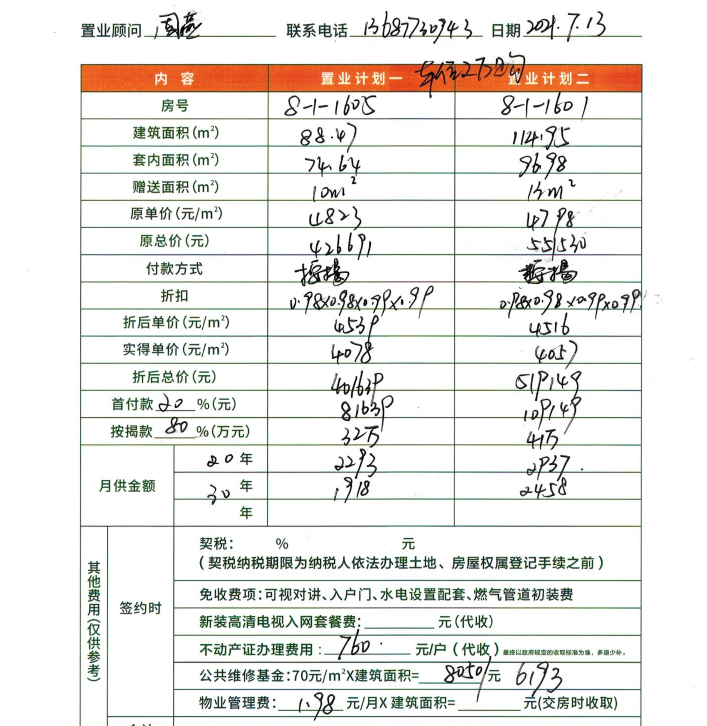 置业顾问 周燕 联系电话 13687730943 日期 2021.7.13
车位2万一个
内 容 置业计划一 置业计划二
房号 8-1-1605 8-1-1601
建筑面积(m²) 88.47 114.95
套内面积(m²) 74.64 96.98
赠送面积(m²) 10m² 13m²
原单价(元/m²) 4823 4798
原总价(元) 426691 551530
付款方式 按揭 按揭
折扣 0.98x0.98x0.99x0.99 0.98x0.98x0.99x0.99
折后单价(元/m²) 4539 4516
实得单价(元/m²) 4078 4057
折后总价(元) 401639 519149
首付款 20 %(元) 81639 109149
按揭款 80 %(万元) 32万 41万
月供金额 20 年 2293 2937.
30 年 1918 2458
年
其他费用(仅供参考)
签约时
契税: % 元
(契税纳税期限为纳税人依法办理土地、房屋权属登记手续之前)
免收费项:可视对讲、入户门、水电设置配套、燃气管道初装费
新装高清电视入网套餐费: 元(代收)
不动产证办理费用: 760. 元/户(代收) 最终以政府规定的收取标准为准,多退少补。
公共维修基金:70元/m²X建筑面积= 8050/元 6193
物业管理费: 1.98 元/月X建筑面积= 元(交房时收取)
合计